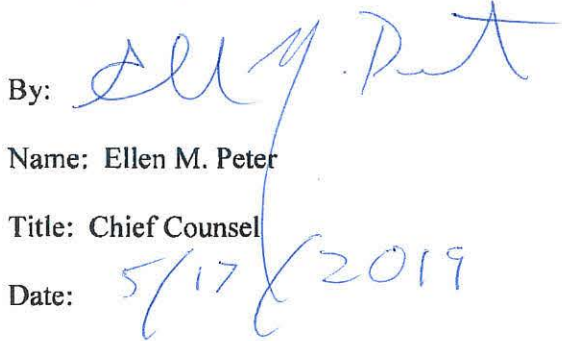 By: Ellen M. Peter
Name: Ellen M. Peter
Title: Chief Counsel
Date: 5/17/2019